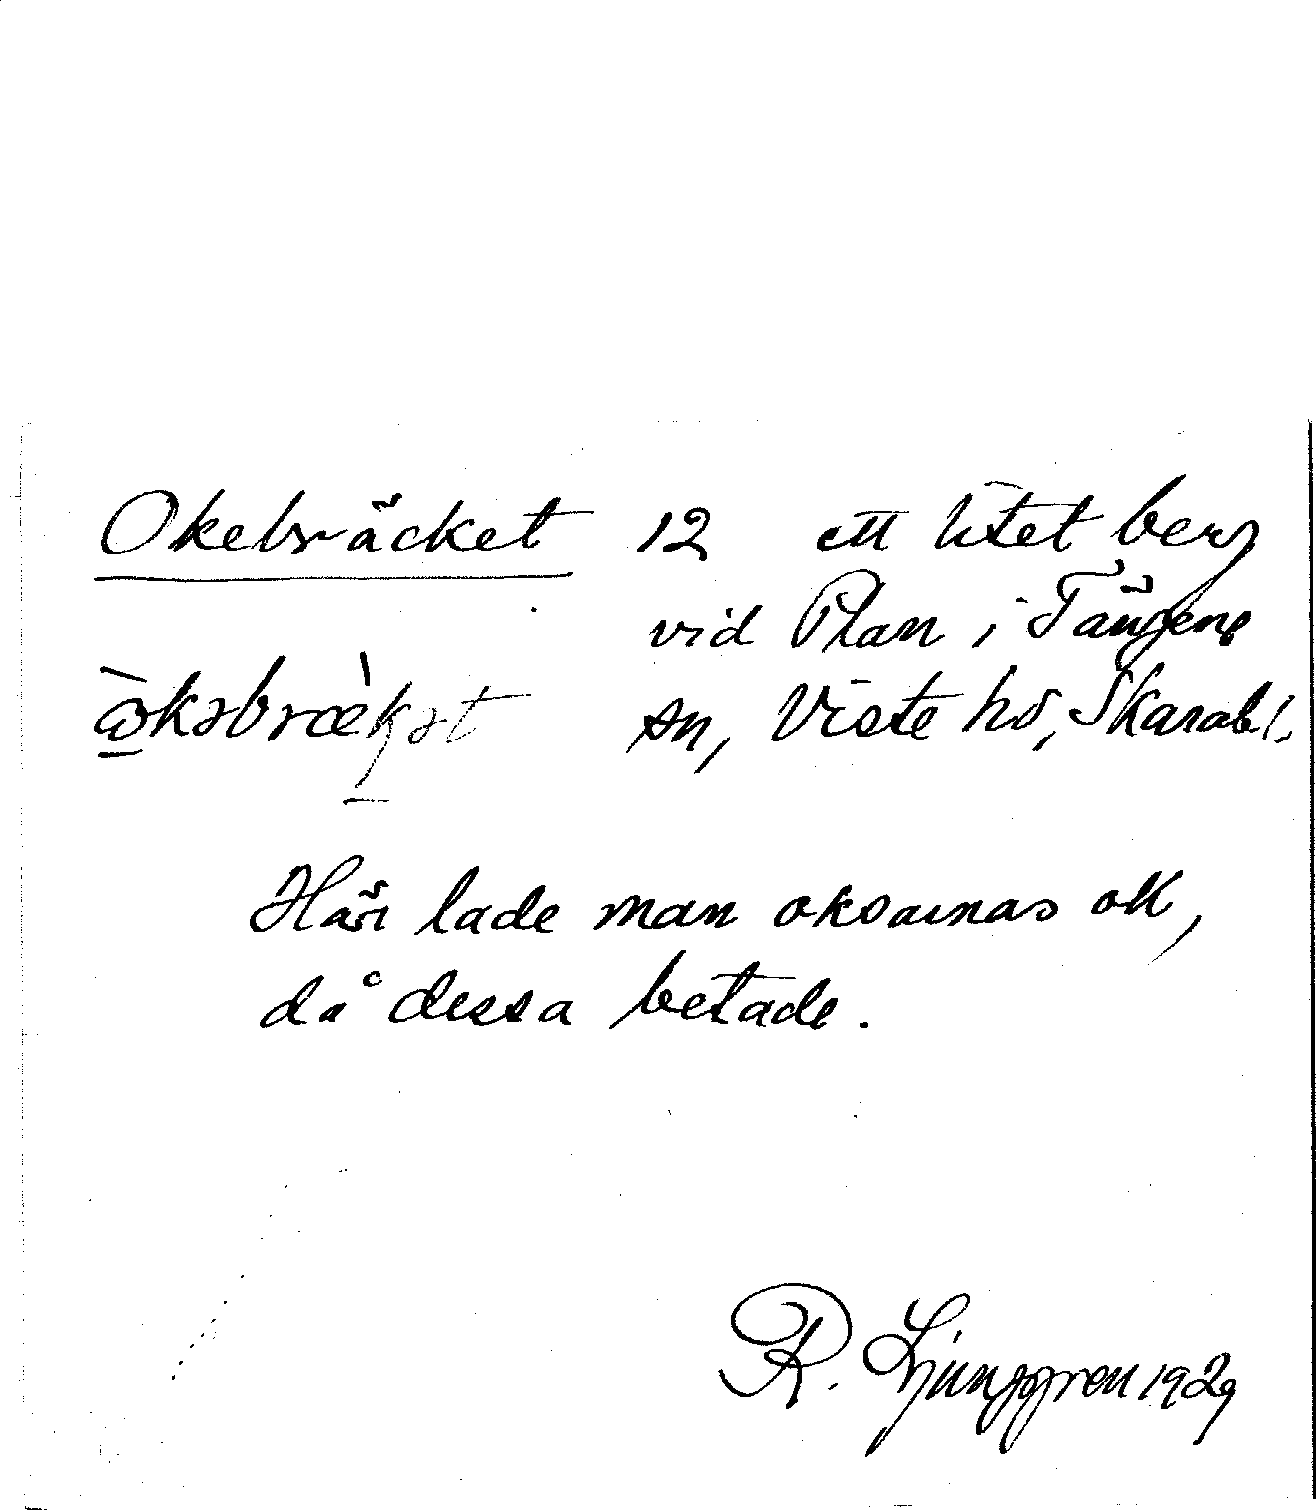 Okebräcket 12 ett litet berg
vid Plan i Tängene
sn, Viste hd, Skarabl.
Här lade man oxarnas ok,
då dessa betade.
R. Ljunggren 1929